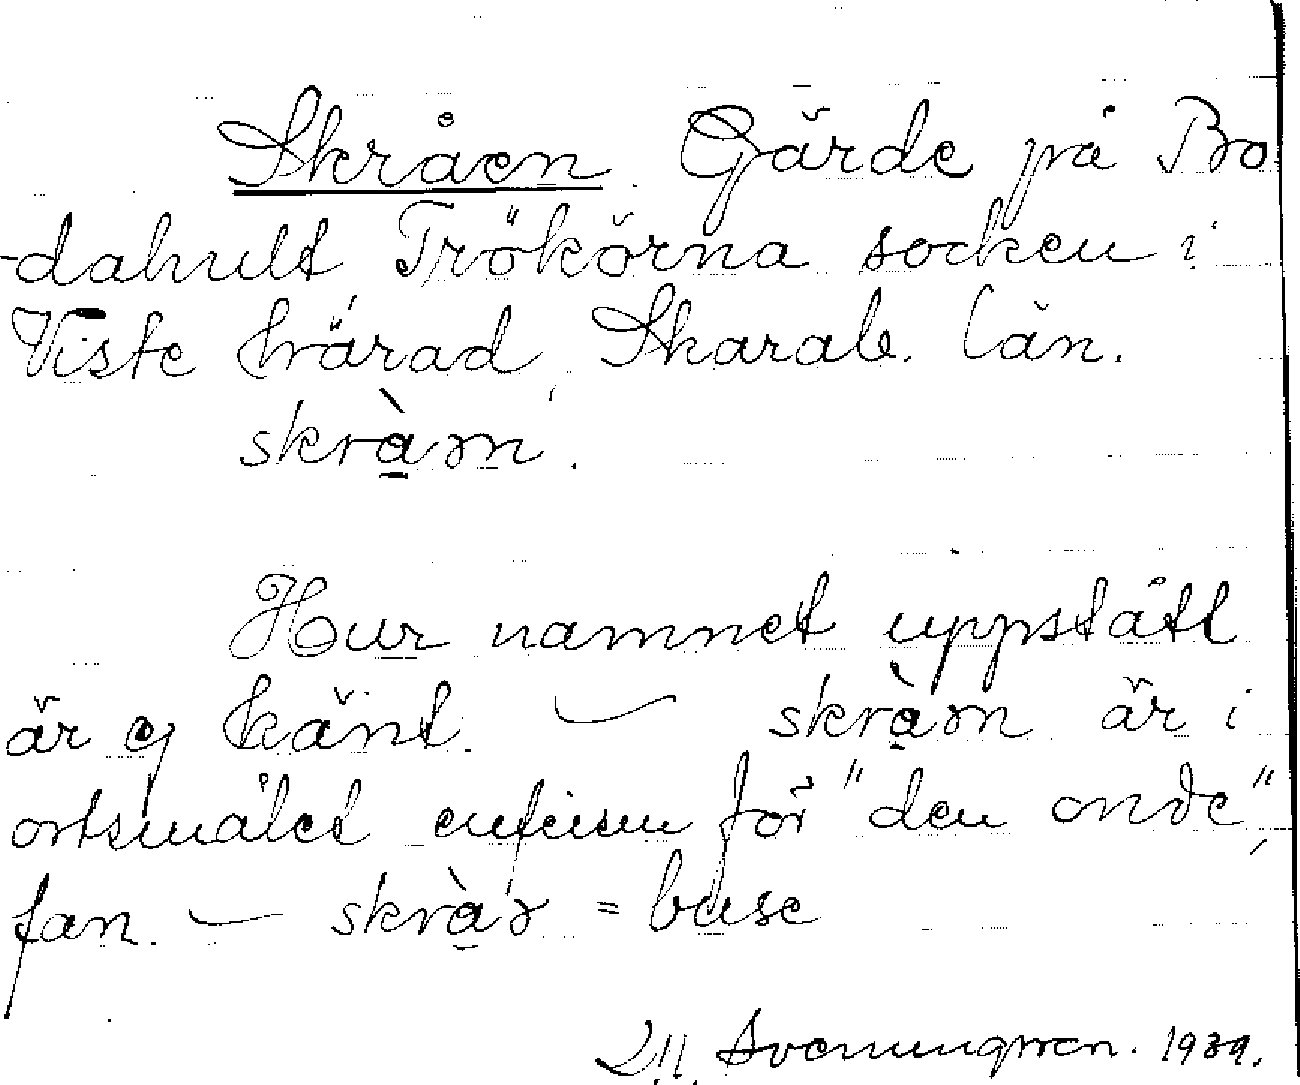 Skråen. Gärde på Bo
-dahult Trökörna socken i
Viste härad, Skarab. län.
skràən.
Hur namnet uppstått
är ej känt. — skràən är i
ortsmålet eufeism för "den onde",
fan. — skràə = buse
Svenungsson. 1939.